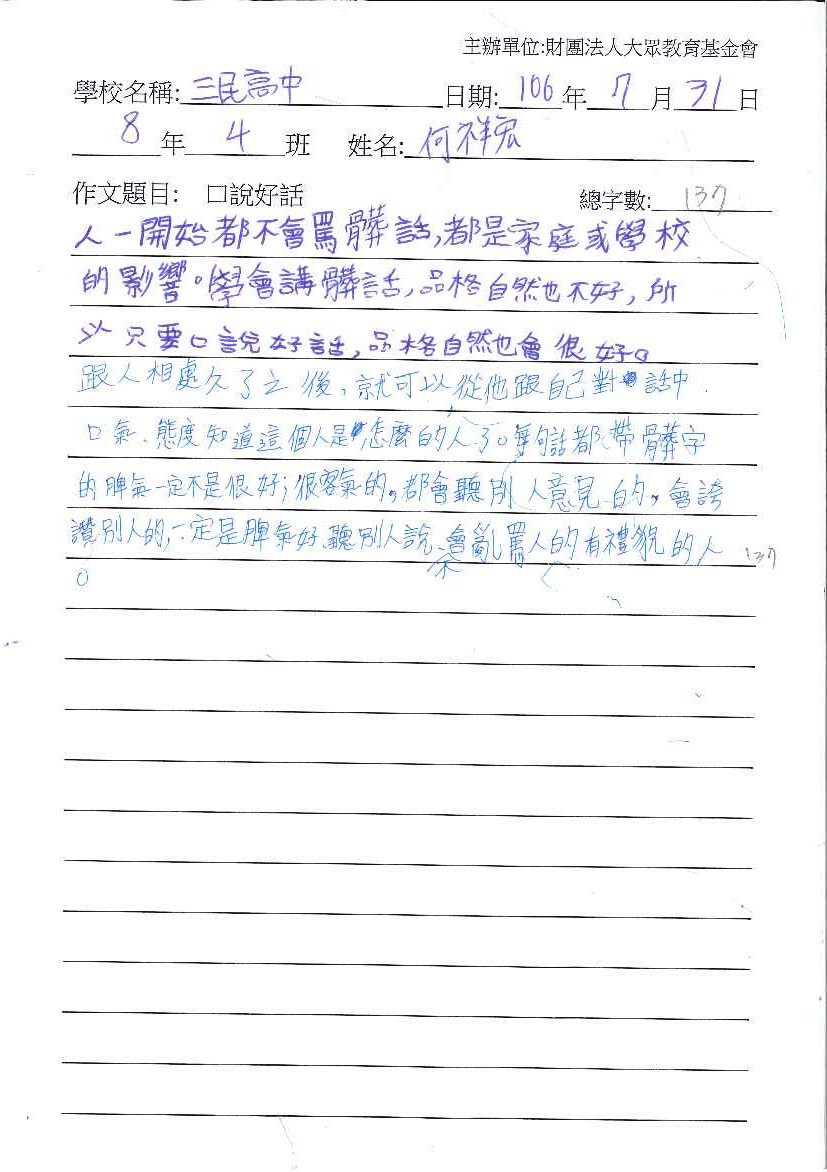 主辦單位:財團法人大眾教育基金會
學校名稱: 三民高中 日期: 106 年 7 月 31 日
8 年 4 班 姓名: 何祥宏
作文題目: 口說好話 總字數: 137
人一開始都不會罵髒話,都是家庭或學校
的影響。學會講髒話,品格自然也不好,所
以只要口說好話,品格自然也會很好。
跟人相處久了之後,就可以從他跟自己對話中
口氣、態度知道這個人是怎麼的人了。每句話都帶髒字
的脾氣一定不是很好;很客氣的,都會聽別人意見的,會誇
讚別人的,一定是脾氣好、聽別人說、不會亂罵人的有禮貌的人 137
。